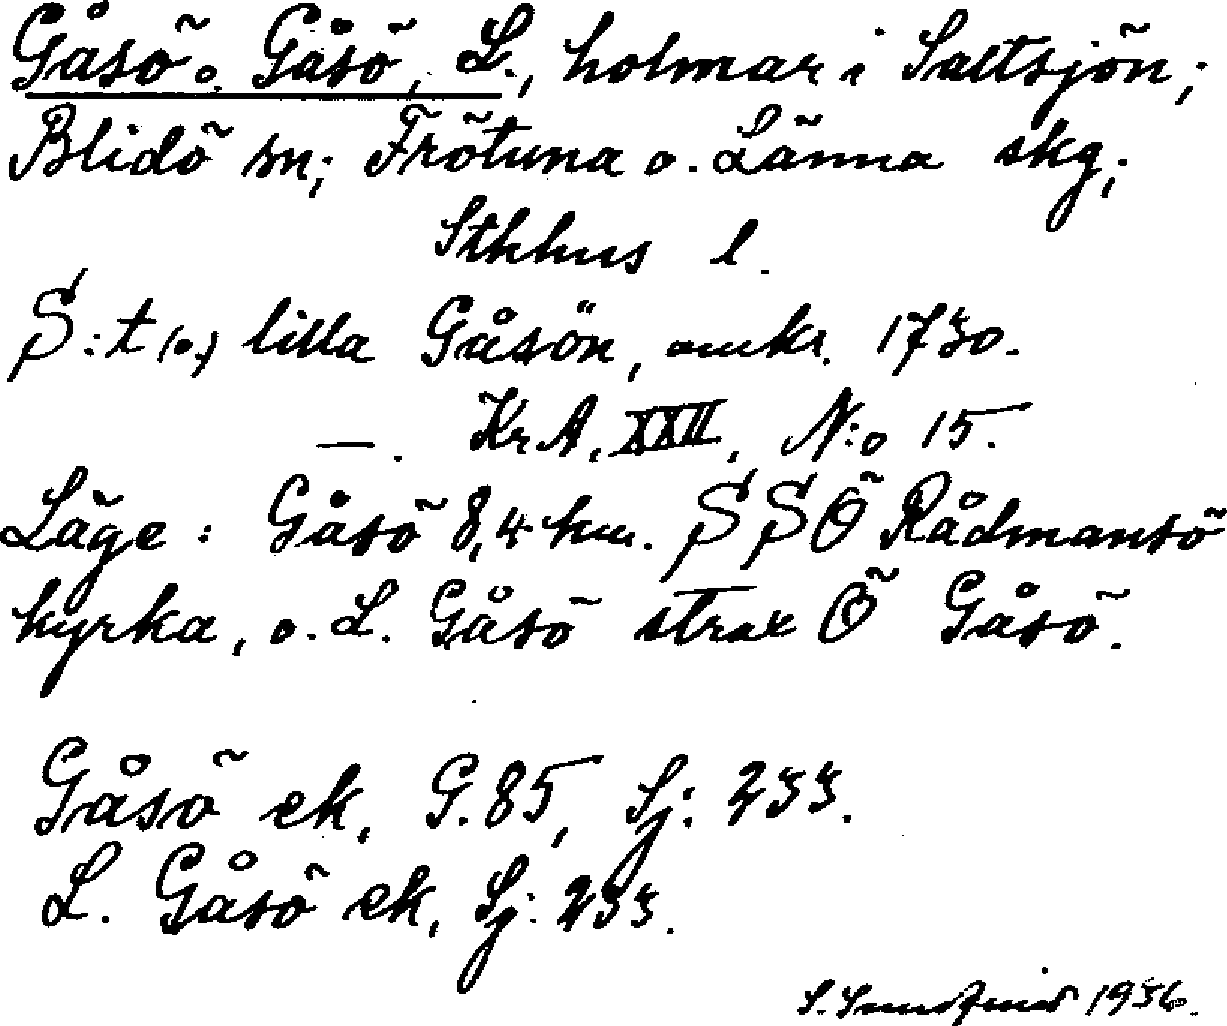 Gåsö o. Gåsö, L., holmar i Saltsjön;
Blidö sn; Frötuna o. Länna skg;
Sthlms l.
S:t (o.) lilla Gåsön, omkr. 1730.
—. KrA, XXII, N:o 15.
Läge: Gåsö 8,4 km. SSÖ Rådmansö
kyrka, o. L. Gåsö strax Ö Gåsö.
Gåsö ek, G.85, Sj: 233.
L. Gåsö ek, Sj: 233.
S. 1936.